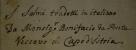 I Salmi tradotti in italiano
Da Monsig.r Bonifacio da Ponte
Vescovo di Capodistria